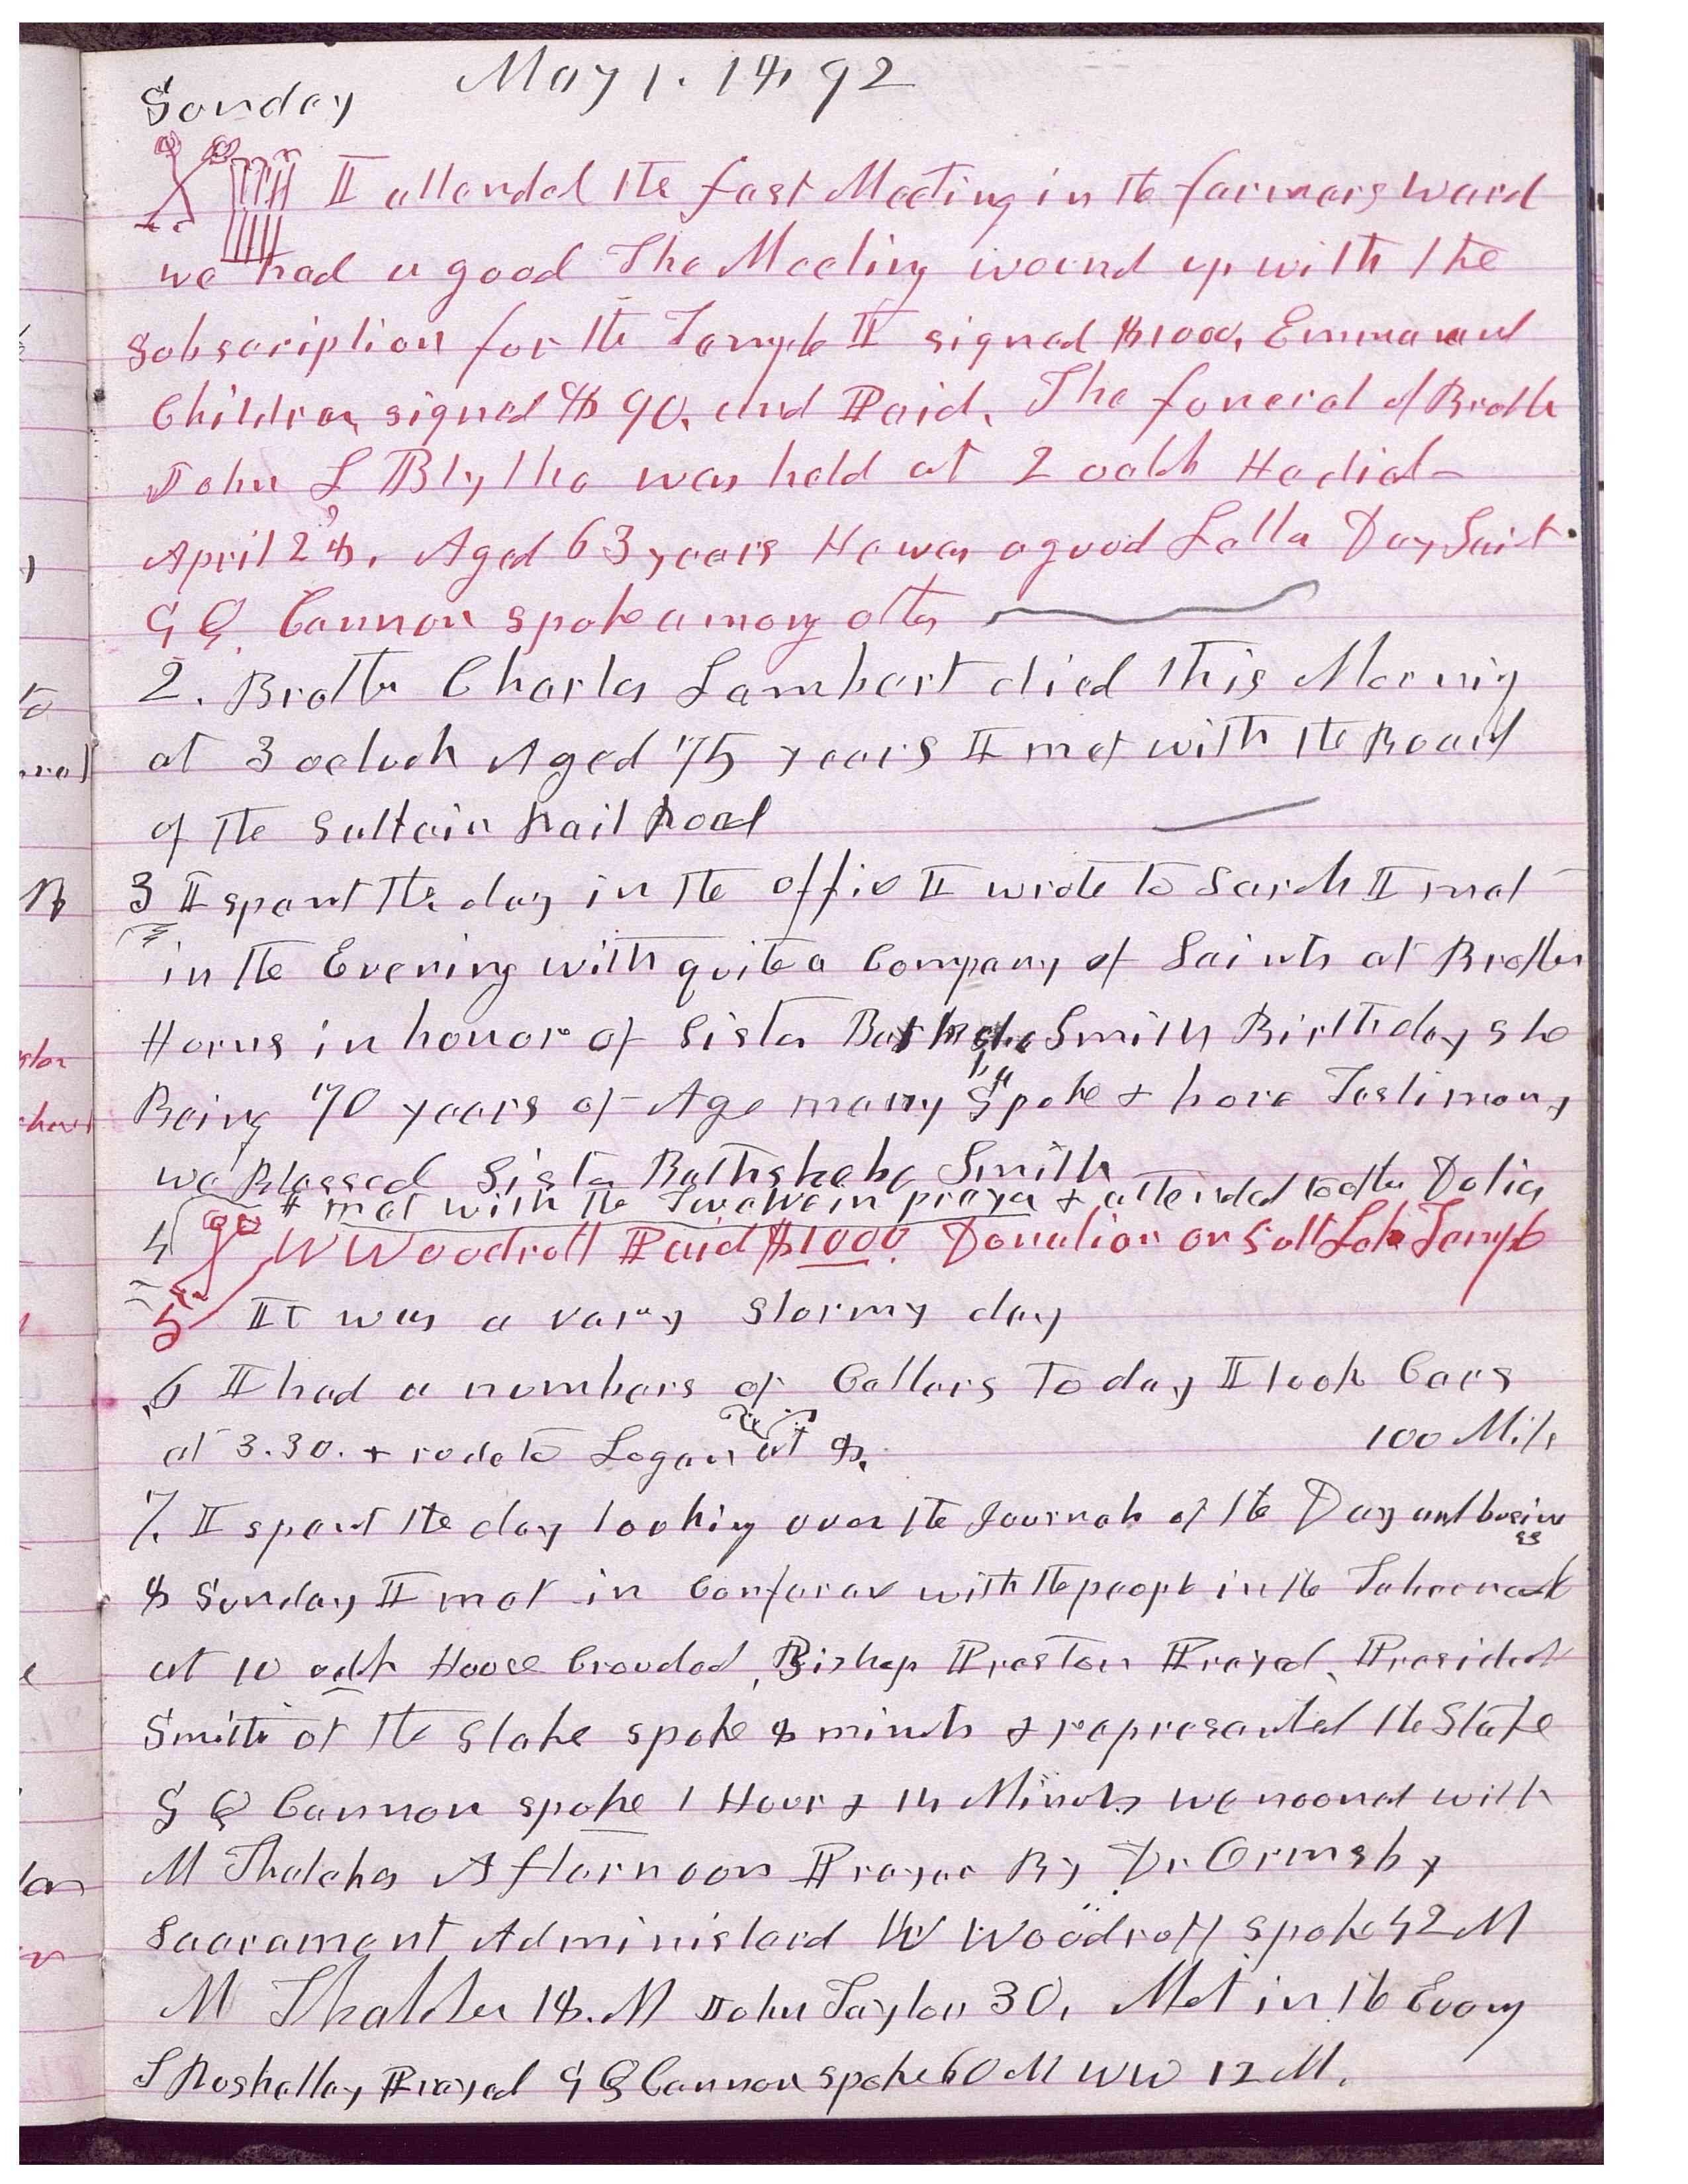 May 1. 1892
Sunday
I attended the fast Meeting in the farmers ward
we had a good The Meeting wound up with the
Subscription for the Temple I signed $1000, Emma and
Children signed $ 90. and Paid. The funeral of Brother
John L Blythe was held at 2 oclk He died
April 28. Aged 63 years He was a good Latter Day Saint
G Q Cannon spoke among others
2. Brother Charles Lambert died this Morning
at 3 oclock Aged 75 years I met with the Board
of the Saltair Rail Road
3 I spent the day in the office I wrote to Sarah I met
in the Evening with quite a Company of Saints at Brother
Horns in honor of Sister Smith Birthday she
Being 70 years of Age many Spoke & bore Testimony
we Blessed Sister Bathsheba Smith
I met with the Twelve in prayer & attended to other Duties
4 W Woodruff Paid $1000. Donation on Salt Lake Temple
5 It was a vary stormy day
6 I had a numbers of Callers to day I took Cars
at 3.30. & rode to Logan at 8.
100 Mils
7. I spent the day looking over the Journals of the Day and business
8 Sunday I met in Conferenc with the people in the Tabernacle
at 10 oclk House Crouded, Bishop Preston Prayed. President
Smith of the Stake spoke 8 minuts & represented the Stake
G Q Cannon spoke 1 Hour & 14 Minuts we nooned with
M Thatcher Afternoon Prayer By Dr Ormsby
Sacrament Administerd W Woodruff spoke 42 M
M Thatcher 18. M John Taylor 30, Met in the Evening
S Roskelley Prayed G Q Cannon spoke 60 M WW 12 M.